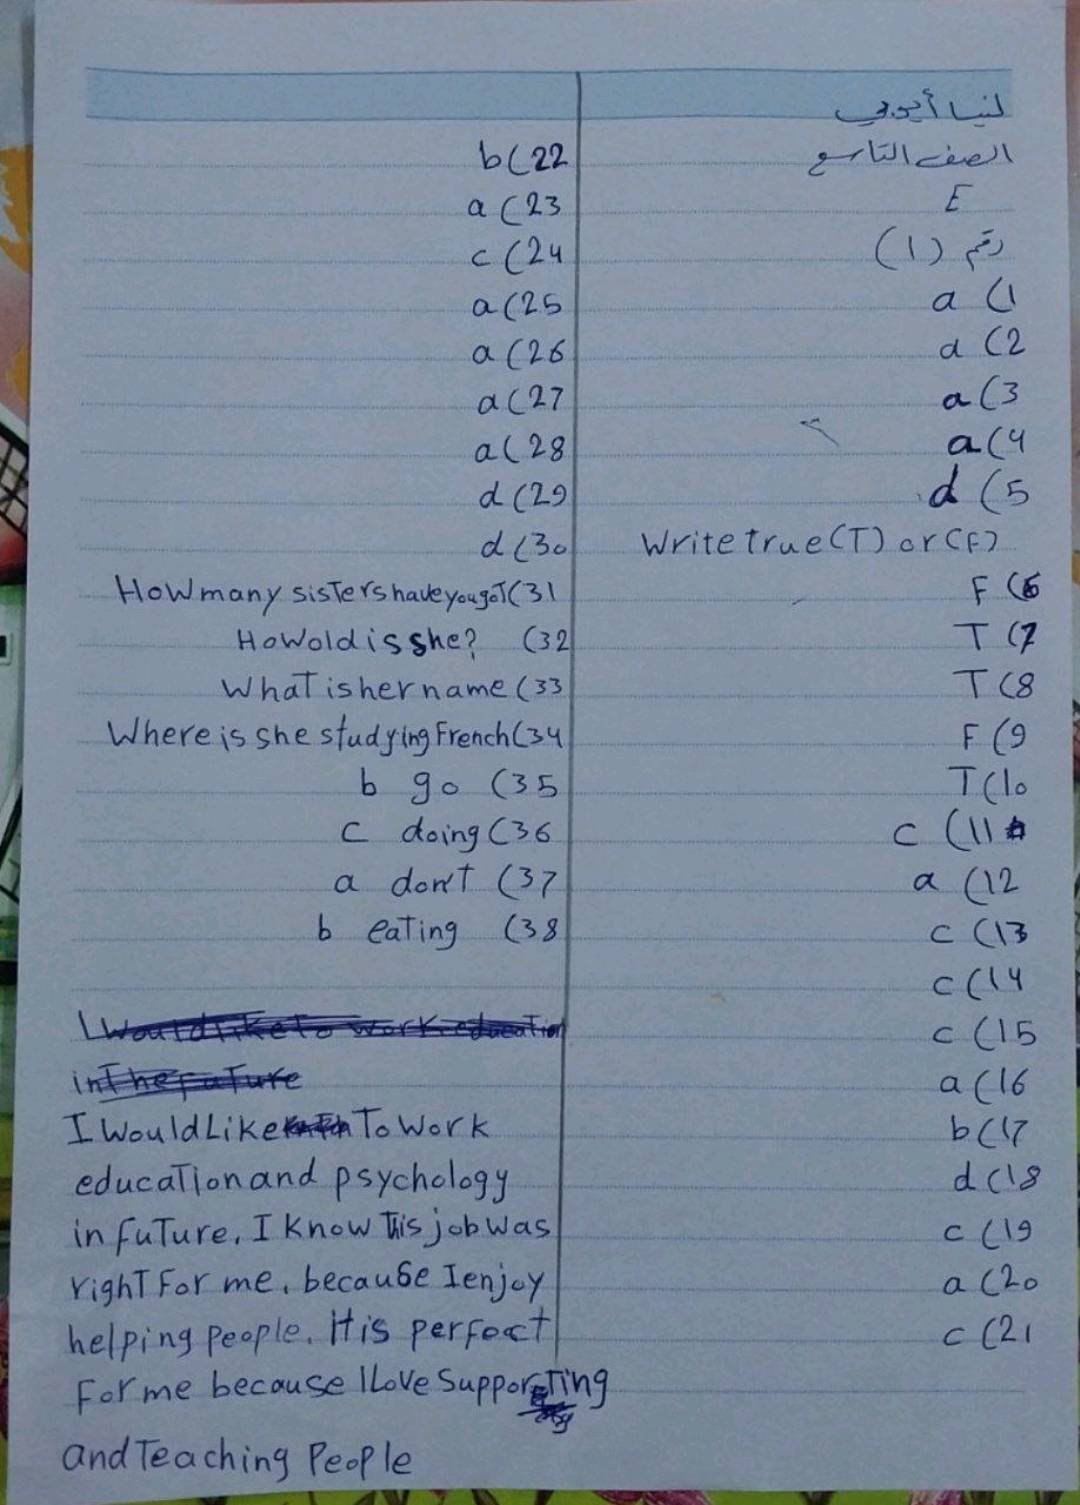 لنيا أيوبي
الصف التاسع
E
رقم (1)
a (1
a (2
a (3
a (4
d (5
Write true (T) or (F)
F (6
T (7
T (8
F (9
T (10
c (11
a (12
c (13
c (14
c (15
a (16
b (17
d (18
c (19
a (20
c (21
b (22
a (23
c (24
a (25
a (26
a (27
a (28
d (29
d (30
How many sisters have you got (31
How old is she? (32
What is her name (33
Where is she studying French (34
b go (35
c doing (36
a don't (37
b eating (38
I would like to work education
in the future
I would Like To work
education and psychology
in future, I know this job was
right for me, because I enjoy
helping people. it is perfect
For me because I Love Supporting
and Teaching People